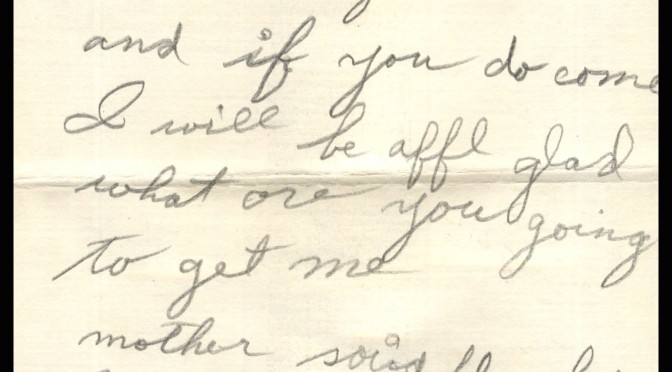 and if you do come
I will be affl glad
what are you going
to get me
mother said